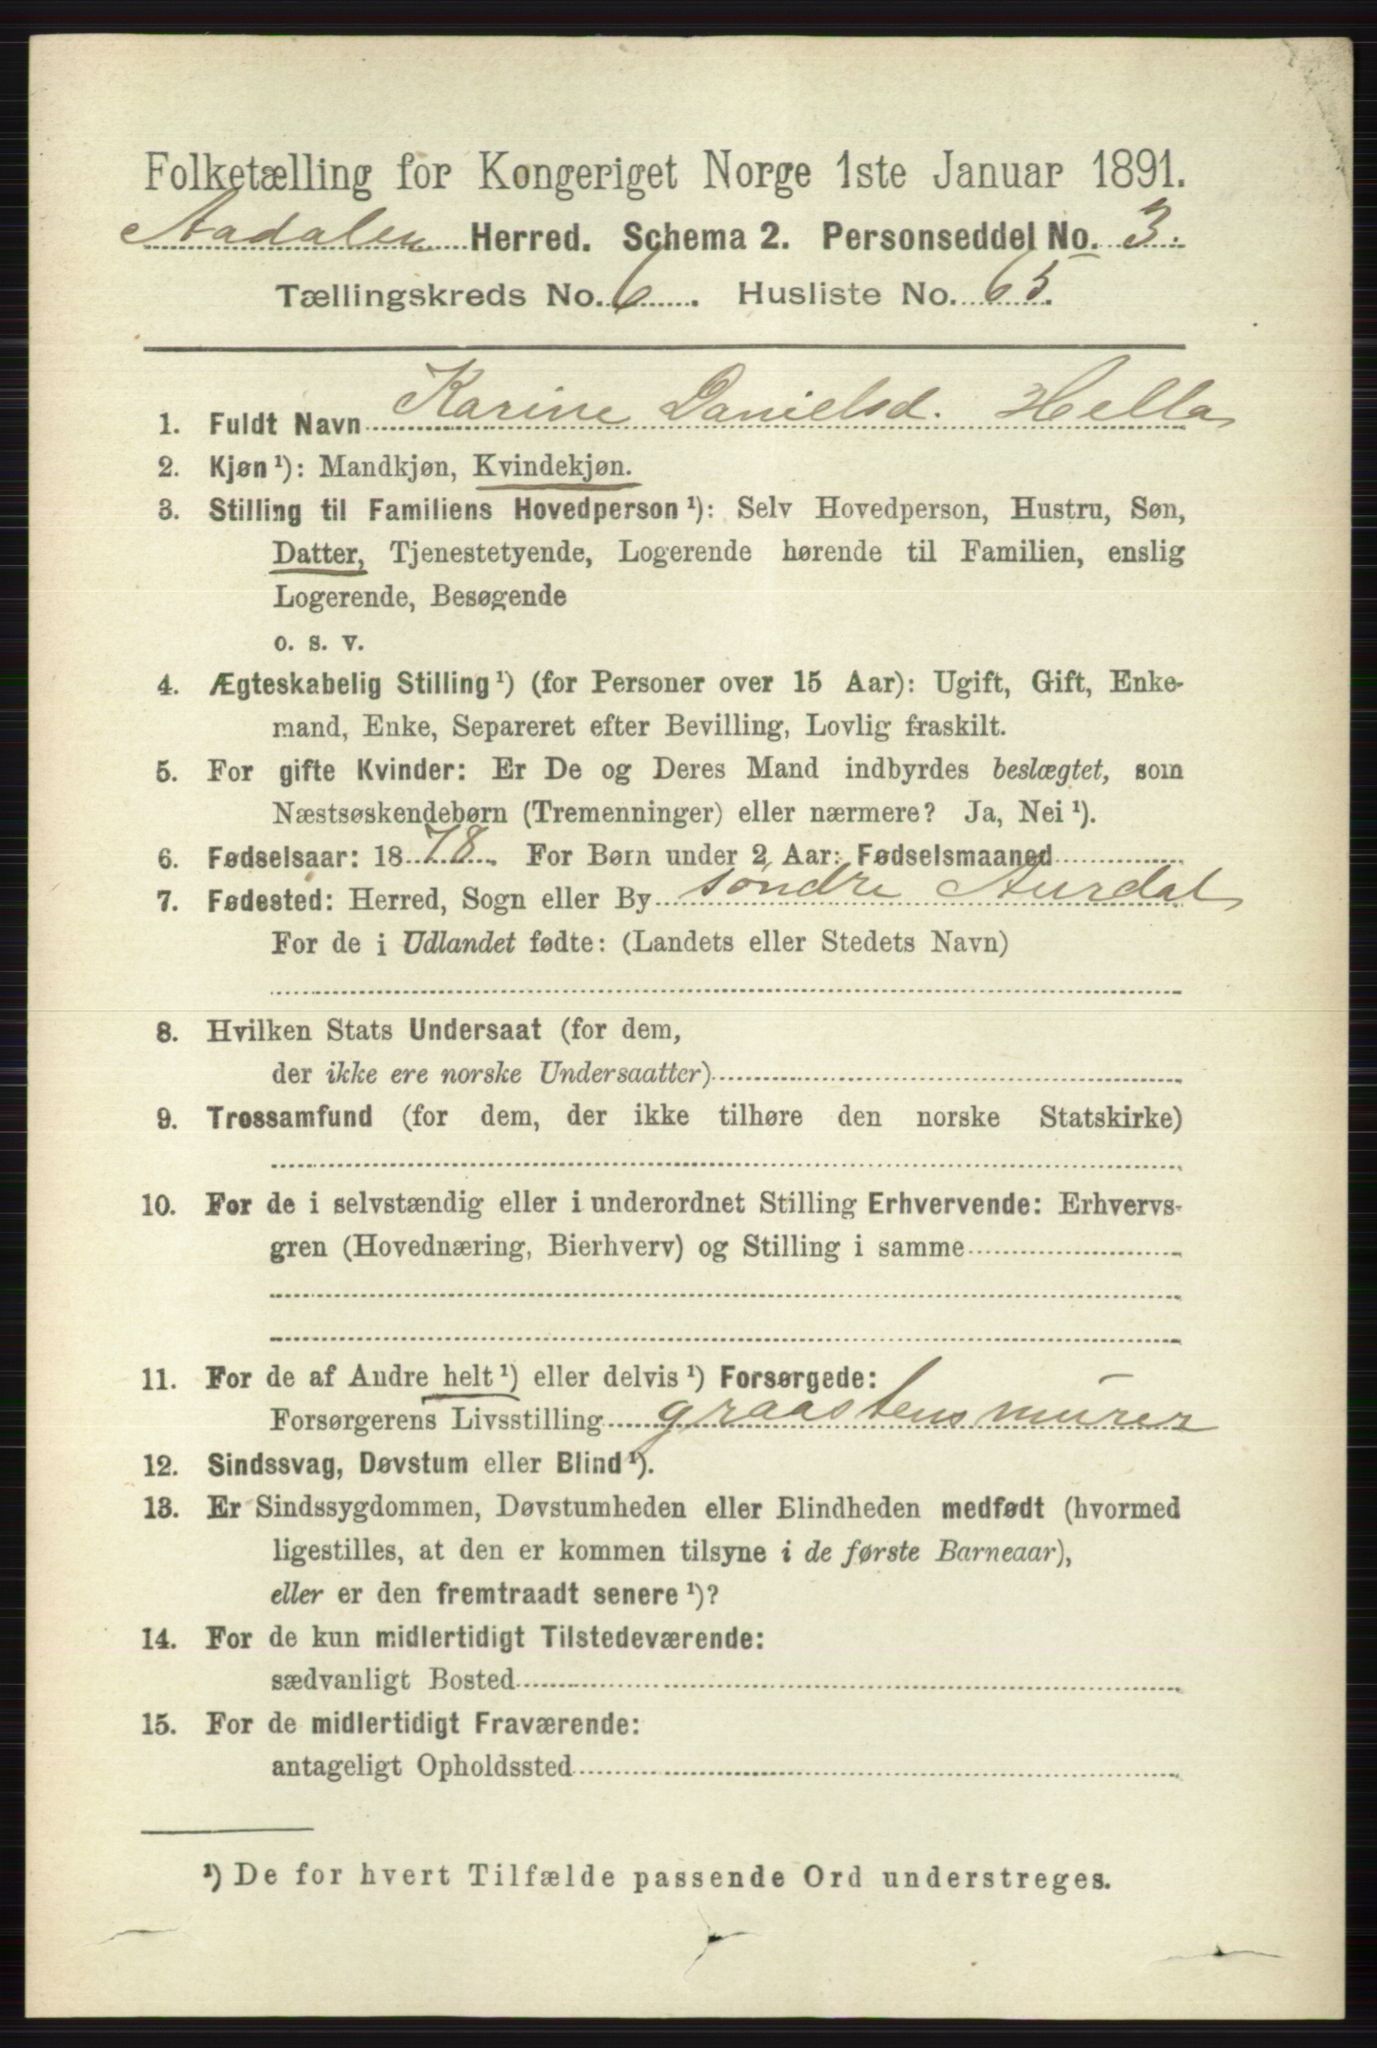 Folketælling for Kongeriget Norge 1ste Januar 1891.
Aadalen Herred. Schema 2. Personseddel No. 3.
Tællingskreds No. 6. Husliste No. 65.
1. Fuldt Navn Karine Danielsd. Hella
2. Kjøn¹): Mandkjøn, Kvindekjøn.
3. Stilling til Familiens Hovedperson¹): Selv Hovedperson, Hustru, Søn,
Datter, Tjenestetyende, Logerende hørende til Familien, enslig
Logerende, Besøgende
o. s. v.
4. Ægteskabelig Stilling¹) (for Personer over 15 Aar): Ugift, Gift, Enke-
mand, Enke, Separeret efter Bevilling, Lovlig fraskilt.
5. For gifte Kvinder: Er De og Deres Mand indbyrdes beslægtet, som
Næstsøskendebørn (Tremenninger) eller nærmere? Ja, Nei¹).
6. Fødselsaar: 1878. For Børn under 2 Aar: Fødselsmaaned
7. Fødested: Herred, Sogn eller By søndre Aurdal
For de i Udlandet fødte: (Landets eller Stedets Navn)
8. Hvilken Stats Undersaat (for dem,
der ikke ere norske Undersaatter)
9. Trossamfund (for dem, der ikke tilhøre den norske Statskirke)
10. For de i selvstændig eller i underordnet Stilling Erhvervende: Erhvervs-
gren (Hovednæring, Bierhverv) og Stilling i samme
11. For de af Andre helt¹) eller delvis¹) Forsørgede:
Forsørgerens Livsstilling graastensmurer
12. Sindssvag, Døvstum eller Blind¹).
13. Er Sindssygdommen, Døvstumheden eller Blindheden medfødt (hvormed
ligestilles, at den er kommen tilsyne i de første Barneaar),
eller er den fremtraadt senere¹)?
14. For de kun midlertidigt Tilstedeværende:
sædvanligt Bosted
15. For de midlertidigt Fraværende:
antageligt Opholdssted
¹) De for hvert Tilfælde passende Ord understreges.